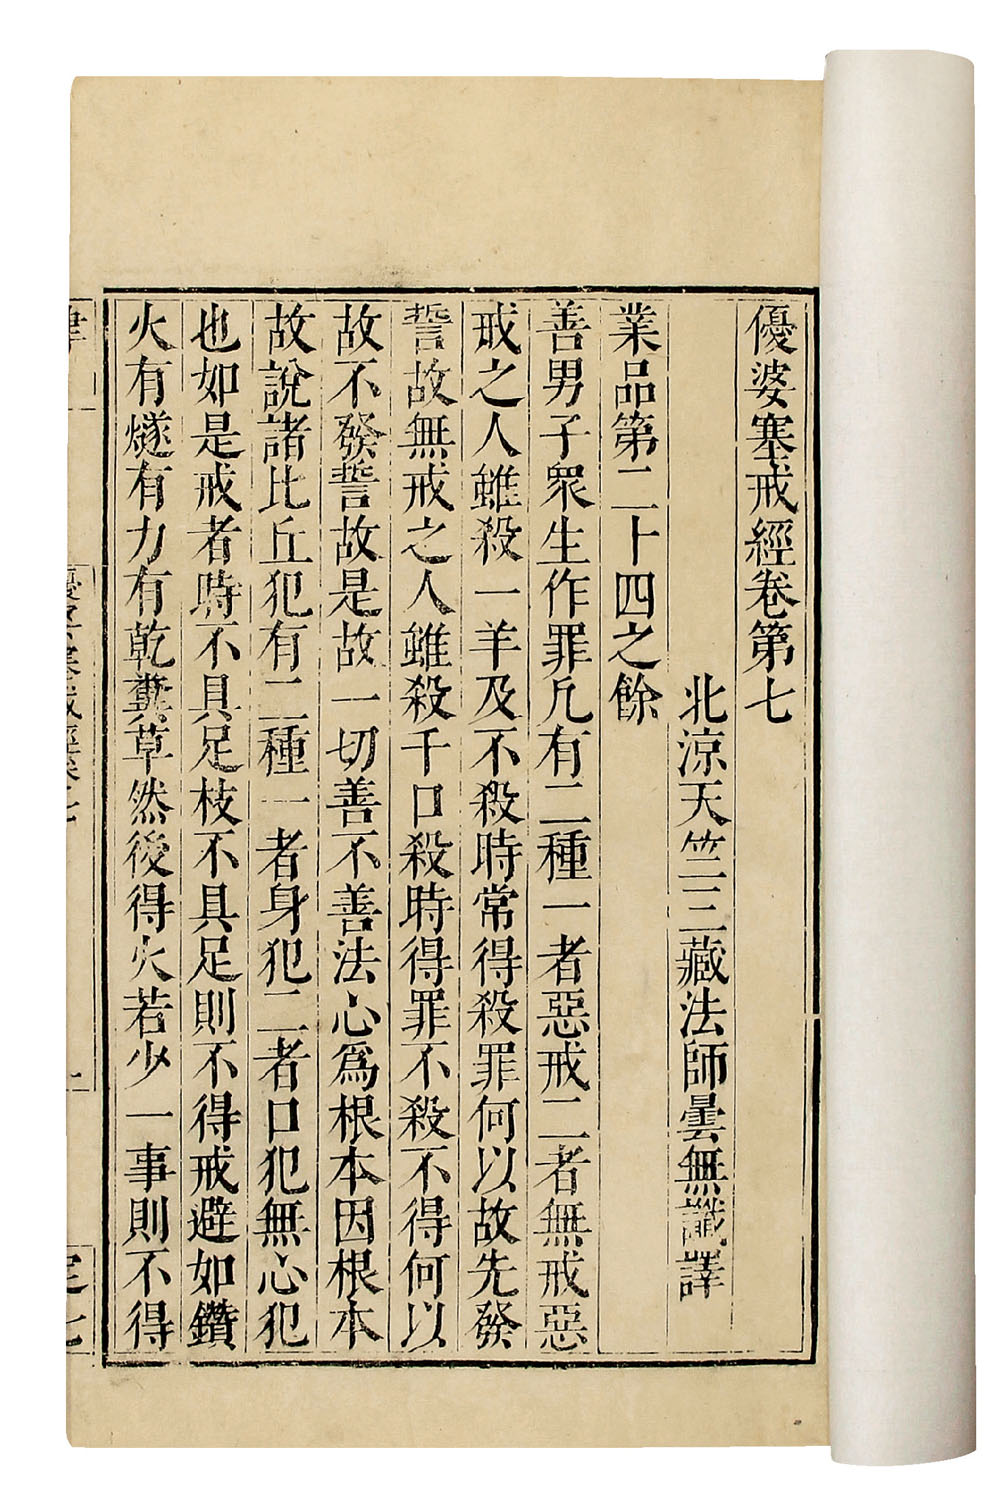 優婆塞戒經卷第七
北涼天竺三藏法師曇無讖譯
業品第二十四之餘
善男子衆生作罪凡有二種一者惡戒二者無戒惡
戒之人雖殺一羊及不殺時常得殺罪何以故先發
誓故無戒之人雖殺千口殺時得罪不殺不得何以
故不發誓故是故一切善不善法心爲根本因根本
故說諸比丘犯有二種一者身犯二者口犯無心犯
也如是戒者時不具足枝不具足則不得戒避如鑽
火有燧有力有乾糞草然後得火若少一事則不得